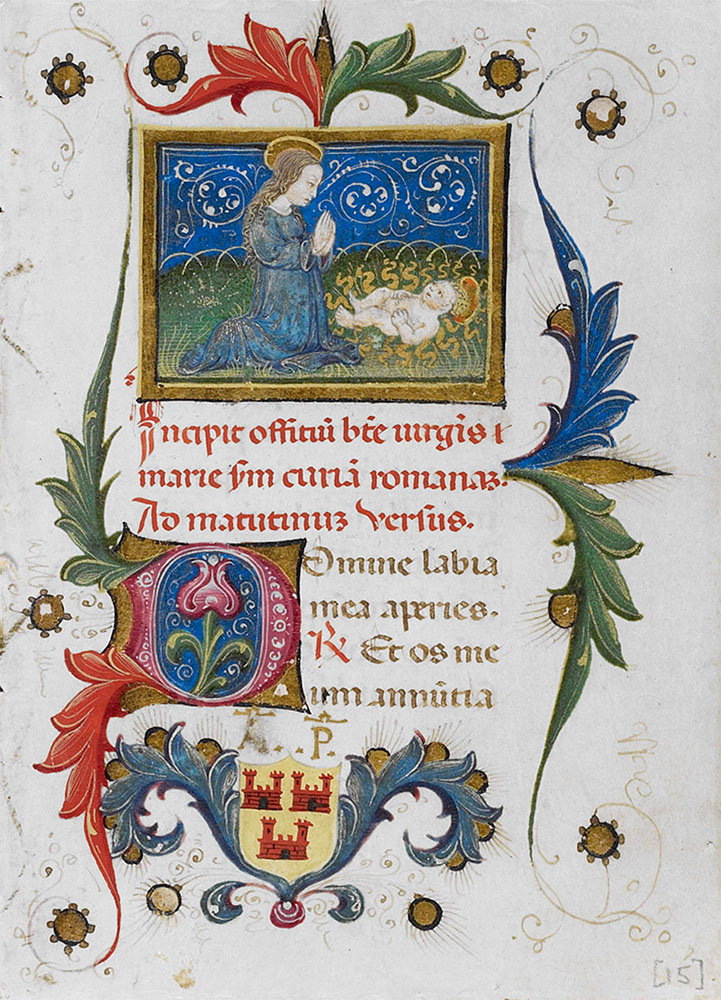 Incipit offitiu᷃ bt̃e uirgĩs
marie sm̃ curiã romanaꝫ.
Ad matutinuꝫ versus.
Domine labia
mea aperies.
R Et os me
um annũtia
A. P.
[15]